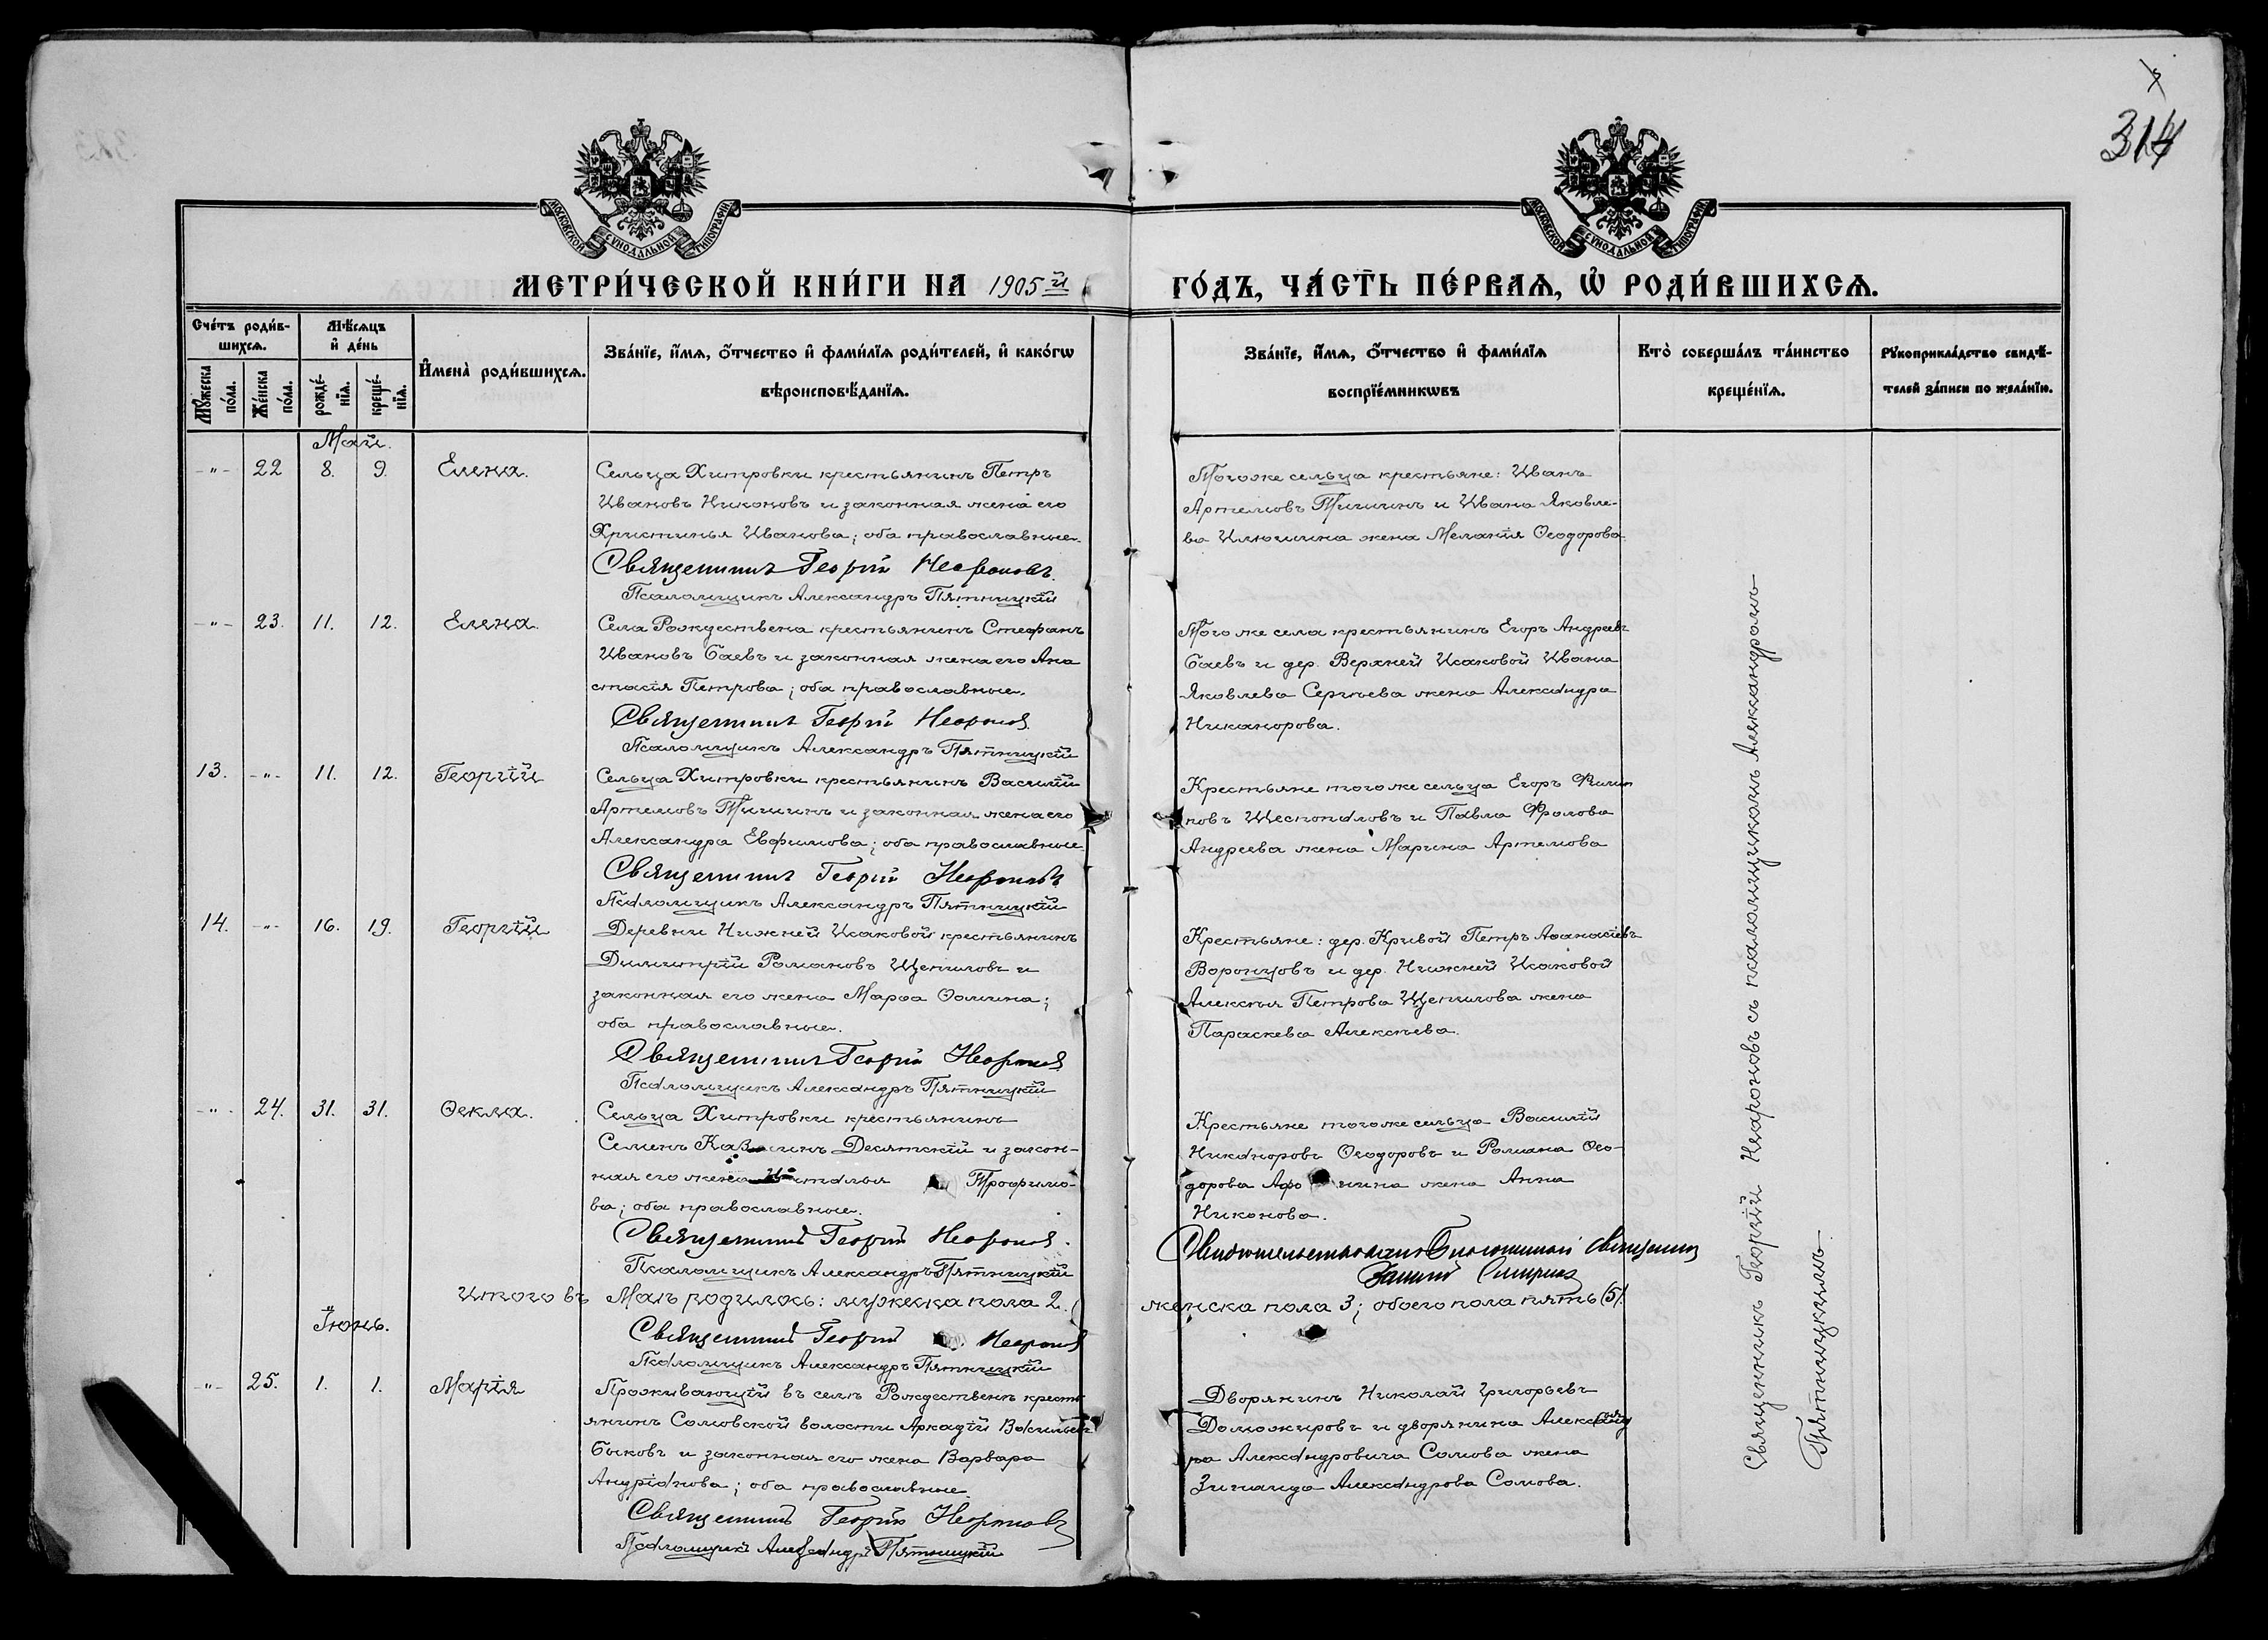 314
МОСКОВСКОЙ СУНОДАЛЬНОЙ ТИПОГРАФІИ
МОСКОВСКОЙ СУНОДАЛЬНОЙ ТИПОГРАФІИ
МЕТРИ́ЧЕСКОЙ КНИ́ГИ НА 1905й
ГО́ДЪ, ЧА́СТЬ ПЕ́РВАѦ, Ѡ РОДИ́ВШИХСѦ.
Сче́тъ роди́в-
шихсѧ.
Мꙋ́жеска по́ла.
Же́нска по́ла.
Мѣ́сѧцъ
и҆ де́нь
рожде́-
нїѧ.
креще́-
нїѧ.
И҆мена̀ роди́вшихсѧ.
Зва́нїе, и҆́мѧ, ѻ҆́тчество и҆ фами́лїѧ роди́телей, и҆ како́гѡ
вѣроисповѣ́данїѧ.
Зва́нїе, и҆́мѧ, ѻ҆́тчество и҆ фами́лїѧ
воспрїе́мникѡвъ
Кто̀ соверша́лъ та́инство
креще́нїѧ.
Рꙋкоприкла́дство свидѣ́-
телей за́писи по жела́нїю.
Май.
-"- 22 8. 9. Елена.
Сельца Хитровки крестьянинъ Петръ
Ивановъ Никоновъ и законная жена его
Христинья Иванова; оба православные.
Священникъ Георгій Неароновъ.
Псаломщикъ Александръ Пятницкій
Тогоже сельца крестьяне: Иванъ
Артемовъ Тишинъ и Ивана Яковле-
ва Илюшина жена Меланія Ѳеодорова.
-"- 23. 11. 12. Елена.
Села Рождествена крестьянинъ Стефанъ
Ивановъ Баевъ и законная жена его Ана
стасія Петрова; оба православные.
Священникъ Георгій Неароновъ.
Псаломщикъ Александръ Пятницкій
Того же села крестьянинъ Егоръ Андреевъ
Баевъ и дер. Верхней Исаковой Ивана
Яковлева Сергѣева жена Александра
Никанорова.
13. -"- 11. 12. Георгій
Сельца Хитровки крестьянинъ Василій
Артемовъ Тишинъ и законная жена его
Александра Евфимова; оба православные.
Священникъ Георгій Неароновъ
Псаломщикъ Александръ Пятницкій
Крестьяне тогоже сельца Егоръ Филип
повъ Шестопаловъ и Павла Фролова
Андреева жена Марина Артемова
14. -"- 16. 19. Георгій
Деревни Нижней Исаковой крестьянинъ
Димитрій Романовъ Щепиловъ и
законная его жена Марѳа Ѳомина;
оба православные.
Священникъ Георгій Неароновъ
Псаломщикъ Александръ Пятницкій
Крестьяне: дер. Кривой Петръ Аѳанасіевъ
Воронцовъ и дер. Нижней Исаковой
Алексѣя Петрова Щепилова жена
Параскева Алексѣева.
-"- 24. 31. 31. Ѳекла.
Сельца Хитровки крестьянинъ
Семенъ Десятскій и закон-
ная его жена Трофимо-
ва; оба православные.
Священникъ Георгій Неароновъ.
Псаломщикъ Александръ Пятницкій
Крестьяне тогоже сельца Василій
Никаноровъ Ѳеодоровъ и Романа Ѳео-
дорова жена Анна
Никонова.
Свидетельствовалъ Благочинный Священник
Смирнов
Итого въ Маѣ родилось: мужеска пола 2.
женска пола 3; обоего пола пять (5).
Священникъ Георгій Неароновъ
Псаломщикъ Александръ Пятницкій
Іюнь.
-"- 25. 1. 1. Марія
Проживающій въ селѣ Рождественѣ кресть
янинъ Сомовской волости Аркадій Васильевъ
Быковъ и законная его жена Варвара
Андріанова; оба православные.
Священникъ Георгій Неароновъ
Псаломщикъ Александръ Пятницкій
Дворянинъ Николай Григорьевъ
Доможировъ и дворянина Александ
ра Александровича Сомова жена
Зинаида Александрова Сомова.
Священникъ Георгій Неароновъ съ псаломщикомъ Александромъ
Пятницкимъ.